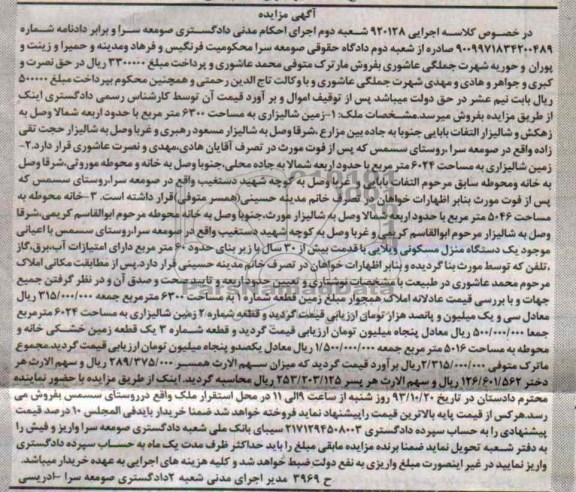 آگهی مزایده
در خصوص کلاسه اجرایی ۹۲۰۱۲۸ شعبه دوم اجرای احکام مدنی دادگستری صومعه سرا و برابر دادنامه شماره
۹۰۰۹۹۷۱۸۳۴۲۰۰۴۸۹ صادره از شعبه دوم دادگاه حقوقی صومعه سرا محکومیت فرنگیس و فرهاد ومدینه و حمیرا و زینت و
پوران و حوریه شهرت جملگی عاشوری بفروش مار ترک متوفی محمد عاشوری و پرداخت مبلغ ۳۳۰۰۰۰۰ ریال در حق نصرت و
کبری و جواهر و هادی و مهدی شهرت جملگی عاشوری و با وکالت تاج الدین رحمتی و همچنین محکوم بپرداخت مبلغ ۵۰۰۰۰۰
ریال بابت نیم عشر در حق دولت میباشد پس از توقیف اموال و بر آورد قیمت آن توسط کارشناس رسمی دادگستری اینک
از طریق مزایده بفروش میرسد.مشخصات ملک: ۱-زمین شالیزاری به مساحت ۶۳۰۰ متر مربع با حدود اربعه شمالا وصل به
زهکش و شالیزار التفات بابایی جنوبا به جاده بین مزارع ،شرقا وصل به شالیزار مسعود رهبری و غربا وصل به شالیزار حجت تقی
زاده واقع در صومعه سرا ،روستای سسمس که پس از فوت مورث در تصرف آقایان هادی،مهدی و نصرت عاشوری قرار دارد.۲-
زمین شالیزاری به مساحت ۶۰۲۴ متر مربع با حدود اربعه شمالا به جاده محلی،جنوبا وصل به خانه و محوطه موروثی،شرقا وصل
به خانه ومحوطه سابق مرحوم التفات بابایی و غربا وصل به کوچه شهید دستغیب واقع در صومعه سراروستای سسمس که
پس از فوت مورث بنابر اظهارات خواهان در تصرف خانم مدینه حسینی(همسر متوفی)قرار داشته است. ۳-خانه محوطه به
مساحت ۵۰۴۶ متر مربع با حدود اربعه شمالا وصل به شالیزار مورث،جنوبا وصل به خانه محوطه مرحوم ابوالقاسم کریمی،شرقا
وصل به شالیزار مرحوم ابوالقاسم کریمی و غربا وصل به کوچه شهید دستغیب واقع در صومعه سراروستای سسمس با اعیانی
موجود یک دستگاه منزل مسکونی ویلایی با قدمت بیش از ۳۰ سال با زیر بنای حدود ۶۰ متر مربع دارای امتیازات آب،برق،گاز
،تلفن که توسط مورث بنا گردیده و بنابر اظهارات خواهان در تصرف خانم مدینه حسینی قرار دارد.پس از مطابقت مکانی املاک
مرحوم محمد عاشوری در طبیعت با مشخصات نوشتاری و تعیین حدود اربعه و تایید صحت و صدق آن و در نظر گرفتن جمیع
جهات و با بررسی قیمت عادلانه املاک همجوار مبلغ زمین قطعه شماره ۱ به مساحت ۶۳۰۰ مترمربع جمعه ۳۱۵/۰۰۰/۰۰۰ ریال
معادل سی و یک میلیون و پانصد هزار تومان ارزیابی قیمت گردید و قطعه شماره ۲ زمین شالیزاری به مساحت ۶۰۲۴ مترمربع
جمعا ۵۰۰/۰۰۰/۰۰۰ ریال معادل پنجاه میلیون تومان ارزیابی قیمت گردید و قطعه شماره ۳ یک قطعه زمین خشکی خانه و
محوطه به مساحت ۵۰۱۶ متر مربع جمعه ۱/۵۰۰/۰۰۰/۰۰۰ ریال معادل یکصدو پنجاه میلیون تومان ارزیابی قیمت گردید.مجموع
ماترک متوفی ۲/۳۱۵/۰۰۰/۰۰۰ ریال برآورد قیمت گردید که میزان سهم الارث همسر ۲۸۹/۳۷۵/۰۰۰ ریال و سهم الارث هر
دختر ۱۲۶/۶۰۱/۵۶۲ ریال و سهم الارث هر پسر ۲۵۳/۲۰۳/۱۲۵ ریال محاسبه گردید. اینک از طریق مزایده با حضور نماینده
محترم دادستان در تاریخ ۹۳/۱۰/۲۰ روز شنبه از ساعت ۹الی ۱۱ در محل استقرار ملک واقع درروستای سسمس بفروش می
رسد.هرکس از قیمت پایه بالاترین قیمت راپیشنهاد نماید فروخته خواهد شد ضمنا خریدار بایدفی المجلس ۱۰ درصد قیمت
پیشنهادی را به حساب سپرده دادگستری ۲۱۷۱۲۹۴۵۰۸۰۰۳ سیبای بانک ملی شعبه دادگستری صومعه سرا واریز و فیش را
به دفتر شعبه تحویل نماید ضمنا برنده مزایده مابقی مبلغ را باید حداکثر ظرف مدت یک ماه به حساب سپرده دادگستری
واریز نمایید در غیر اینصورت مبلغ واریزی به نفع دولت ضبط خواهد شد و کلیه هزینه های اجرایی به عهده خریدار میباشد.
ح ۳۹۶۹ مدیر اجرای مدنی شعبه ۲دادگستری صومعه سرا -ادریسی